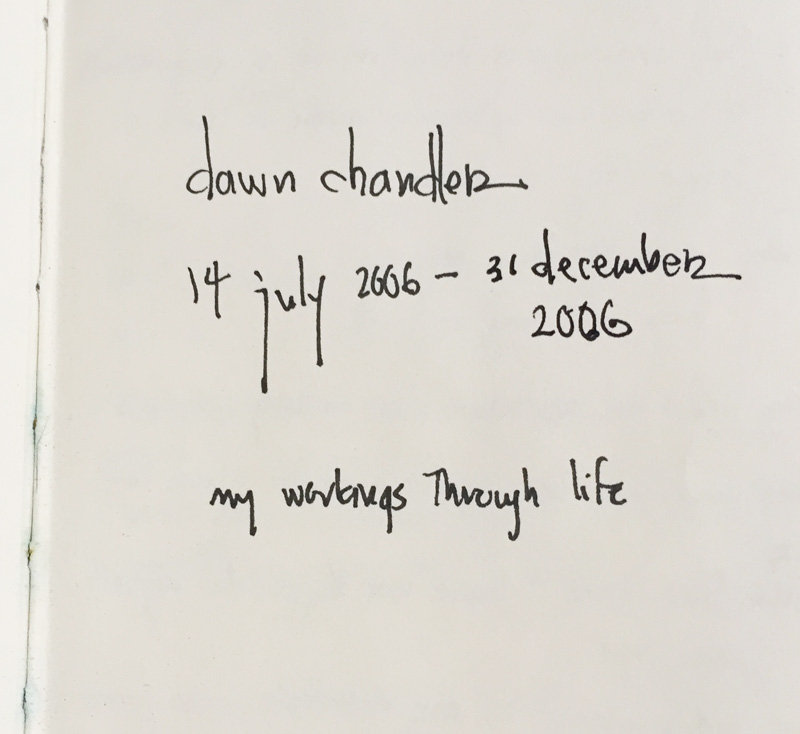 dawn chandler
14 july 2006 - 31 december
2006
my workings Through life